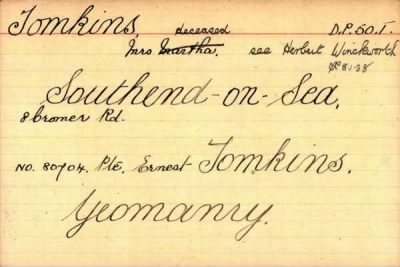 Tomkins, deceased D.P. 50.T.
Mrs Martha. see Herbert Winckworth
Southend-on-Sea,
8 Cromer Rd.
No. 80704. Pte. Ernest Tomkins.
Yeomanry.